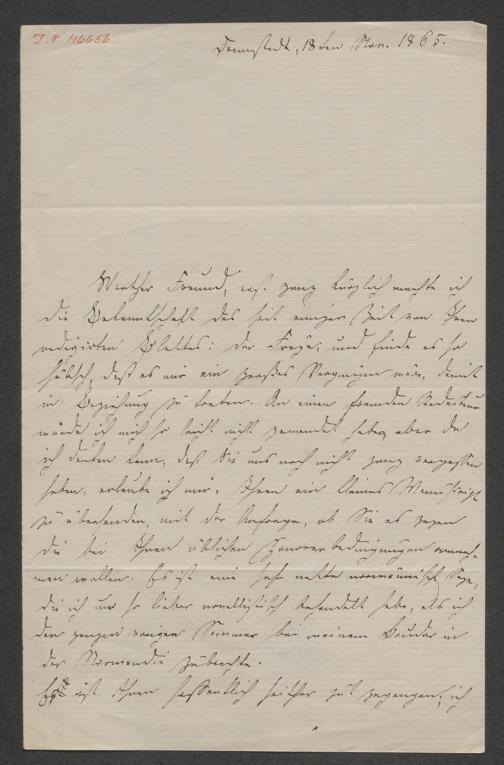 J. N. 116656
Darmstadt, 18ten Nov. 1865.
Werther Freund, erst ganz kürzlich machte ich
die Bekanntschaft des seit einiger Zeit von Ihnen
redigirten Blattes: der Freya, und finde es so
hübsch, daß es mir ein großes Vergnügen wäre, damit
in Beziehung zu treten. An einen fremden Redakteur
würde ich mich so leicht nicht gewendet haben, aber da
ich denken kann, daß Sie uns noch nicht ganz vergessen
haben, erlaube ich mir, Ihnen ein kleines Manuscript
zu übersenden, mit der Anfrage, ob Sie es gegen
die bei Ihnen üblichen Honorarbedingungen anneh-
men wollen. Es ist eine sehr nette normännische Sage,
die ich um so lieber novellistisch behandelt habe, als ich
den ganzen vorigen Sommer bei meinem Bruder in
der Normandie zubrachte.
ist Ihnen hoffentlich seither gut gegangen, ich